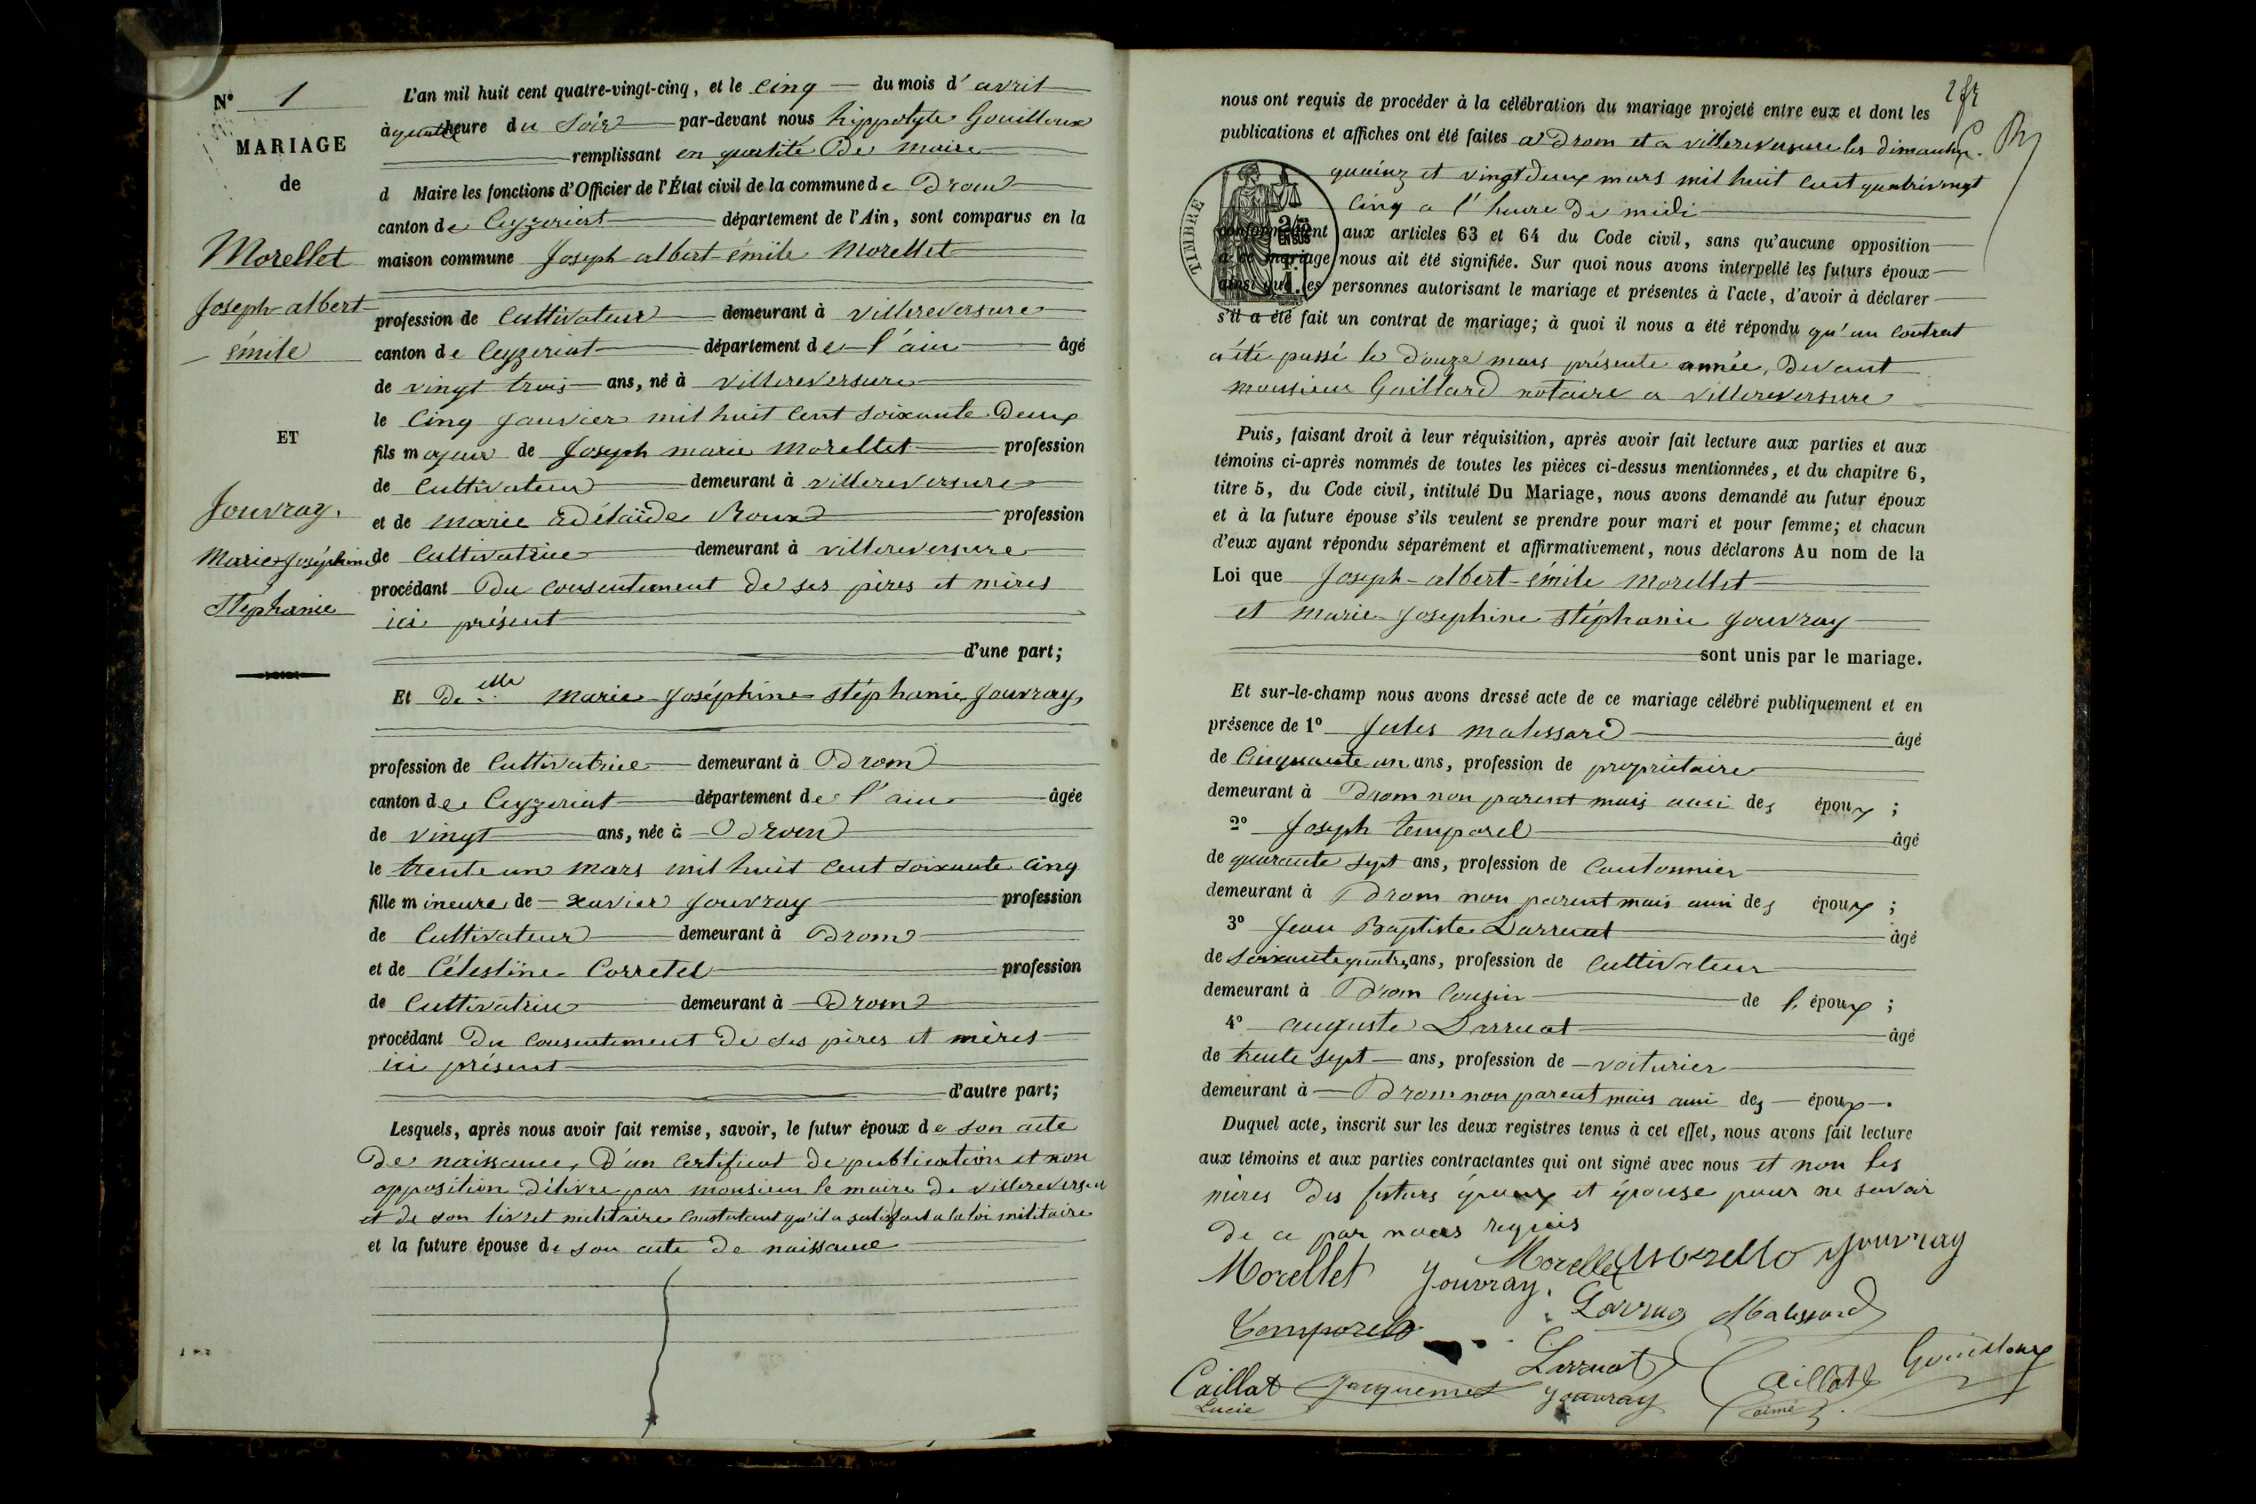 N° 1
MARIAGE
de
Morellet
Joseph albert
émile
ET
Jouvray.
Marie Joséphine
Stéphanie
L'an mil huit cent quatre-vingt-cinq, et le cinq du mois d'avril
à quatre heure du Soir par-devant nous hippolyte Gouilloux
remplissant en quatité de maire
d Maire les fonctions d'Officier de l'État civil de la commune de Drom
canton de Ceyzeriat département de l'Ain, sont comparus en la
maison commune Joseph albert émile Morellet
profession de Cultivateur demeurant à villereversure
canton de Ceyzeriat département de l'ain âgé
de vingt trois ans, né à villereversure
le Cinq Janvier mil huit cent soixante Deux
fils majeur de Joseph marie Morellet profession
de Cultivateur demeurant à villereversure
et de Marie Adélaïde Roux profession
de Cultivatrice demeurant à villereversure
procédant Du consentement de ses pères et mères
ici présent
d'une part;
Et Delle Marie Joséphine Stéphanie Jouvray,
profession de Cultivatrice demeurant à Drom
canton de Ceyzeriat département de l'ain âgée
de vingt ans, née à Drom
le trente un Mars mil huit cent soixante cinq
fille mineure de xavier Jouvray profession
de Cultivateur demeurant à Drom
et de Célestine Corretel profession
de Cultivatrice demeurant à Drom
procédant Du consentement de ses pères et mères
ici présent
d'autre part;
Lesquels, après nous avoir fait remise, savoir, le futur époux de son acte
De naissance, D'un certificat de publication et non
opposition délivré par monsieur le maire de villereversure
et de son livret militaire constatant qu'il a satisfait a la loi militaire
et la future épouse de son acte de naissance
2 fr
nous ont requis de procéder à la célébration du mariage projeté entre eux et dont les
publications et affiches ont été faites a Drom et a villereversure les dimanches
quainz et vingt Deux mars mil huit cent quatrevingt
Cinq a l'heure De midi
TIMBRE
conformément aux articles 63 et 64 du Code civil, sans qu'aucune opposition
à ce mariage nous ait été signifiée. Sur quoi nous avons interpellé les futurs époux
ainsi que les personnes autorisant le mariage et présentes à l'acte, d'avoir à déclarer
s'il a été fait un contrat de mariage; à quoi il nous a été répondu qu'un contrat
a été passé le Douze mars présente année, Devant
monsieur Gaillard notaire a villereversure
Puis, faisant droit à leur réquisition, après avoir fait lecture aux parties et aux
témoins ci-après nommés de toutes les pièces ci-dessus mentionnées, et du chapitre 6,
titre 5, du Code civil, intitulé Du Mariage, nous avons demandé au futur époux
et à la future épouse s'ils veulent se prendre pour mari et pour femme; et chacun
d'eux ayant répondu séparément et affirmativement, nous déclarons Au nom de la
Loi que Joseph-albert-émile Morellet
et Marie Josephine Stéphanie Jouvray
sont unis par le mariage.
Et sur-le-champ nous avons dressé acte de ce mariage célébré publiquement et en
présence de 1° Jules Malessard âgé
de Cinquante un ans, profession de propriétaire
demeurant à Drom non parent mais ami des époux ;
2° Joseph Temporel âgé
de quarante sept ans, profession de Cantonnier
demeurant à Drom non parent mais ami des époux ;
3° Jean Baptiste Larruat âgé
de soixante quatre ans, profession de Cultivateur
demeurant à Drom Cousin de l'époux ;
4° auguste Larruat âgé
de trente sept ans, profession de voiturier
demeurant à Drom non parent mais ami des époux.
Duquel acte, inscrit sur les deux registres tenus à cet effet, nous avons fait lecture
aux témoins et aux parties contractantes qui ont signé avec nous et non les
mères Des futurs époux et épouse pour ne savoir
De ce par nous requis
Morellet Jouvray. Morellet Morello Jouvray
Temporel Larrua Malessard
Larruat Gouilloux
Caillat Jacquemet Jouvray Caillat
Lucie aimé